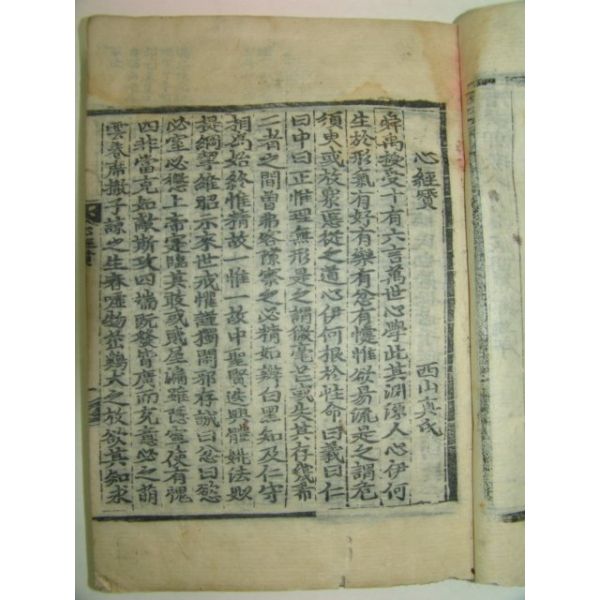 心經贊
西山真氏
舜禹授受十有六言萬世心學此其淵源人心伊何
生於形氣有好有樂有忿有懥惟欲易流是之謂危
須臾或放衆慝從之道心伊何根於性命曰義曰仁
曰中曰正惟理無形是之謂微毫芒或失其存幾希
二者之間曾弗容隙察之必精如辨白黑知及仁守
相爲始終惟精故一惟一故中聖賢迭興體姚法姒
提綱挈維昭示來世戒懼謹獨閑邪存誠曰忿曰慾
必窒必懲上帝寔臨其敢或貳屋漏雖隱寧使有愧
四非當克如敵斯攻四端旣發皆廣而充意必之萌
雲卷席撤子諒之生春噓物茁鷄犬之放欲其知求